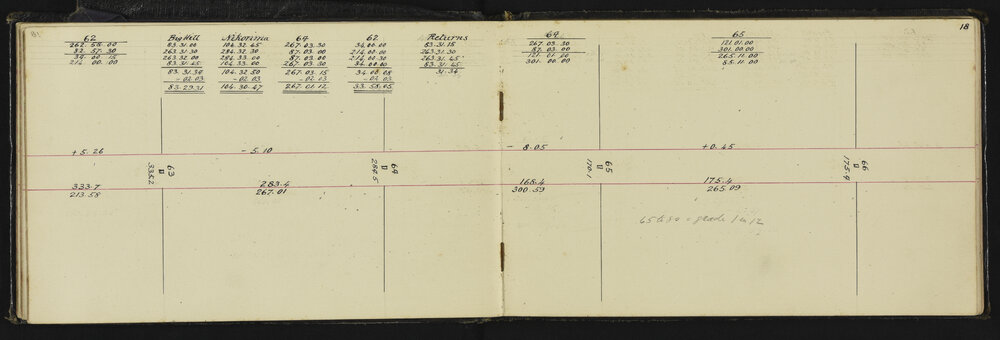 18
62 Big Hill Nikorima 64 62 Returns 64 65
262.58.00 83.31.00 104.32.45 267.03.30 34.00.00 83.31.15 267.03.30 121.01.00
82.57.30 263.31.30 284.32.30 87.03.00 214.00.00 263.31.30 87.03.00 301.00.00
34.00.15 263.32.00 284.33.00 87.03.00 214.00.30 263.31.45 121.01.00 265.11.00
214.00.00 83.31.45 104.33.00 267.03.30 34.00.00 83.31.45 301.00.00 85.11.00
83.31.34 104.32.50 267.03.15 34.00.08 31.34
-02.03 -02.03 -02.03 -02.03
83.29.31 104.30.47 267.01.12 33.58.05
+5.26 -5.10 -8.05 +0.45
63 □ 335.2
64 □ 284.5
65 □ 170.1
66 □ 175.9
333.7 283.4 168.4 175.4
213.58 267.01 300.59 265.09
65 to 80 = grade 1 in 12